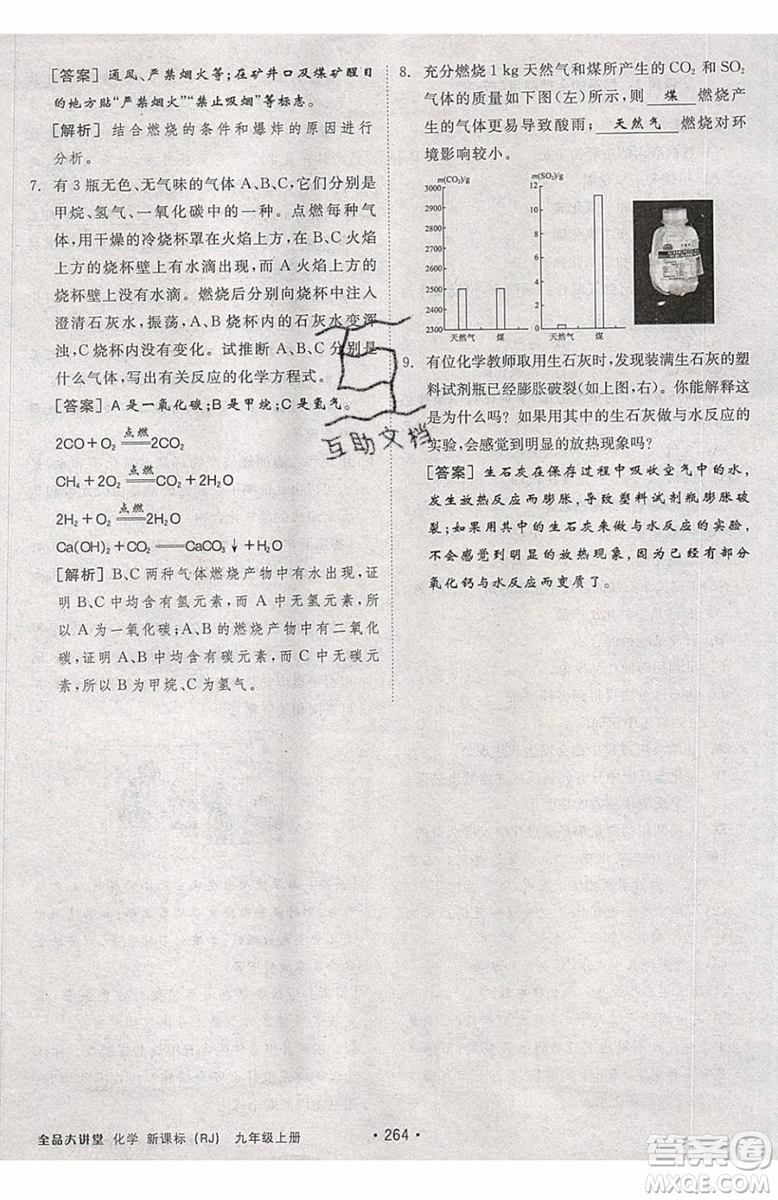 [答案] 通风、严禁烟火等;在矿井口及煤矿醒目
的地方贴“严禁烟火”“禁止吸烟”等标志。
[解析] 结合燃烧的条件和爆炸的原因进行
分析。
7. 有 3 瓶无色、无气味的气体 A、B、C,它们分别是
甲烷、氢气、一氧化碳中的一种。点燃每种气
体,用干燥的冷烧杯罩在火焰上方,B、C 火焰
上方的烧杯壁上有水滴出现,A 火焰上方的
烧杯壁上没有水滴。燃烧后分别向烧杯中注入
澄清石灰水,振荡,A、B 烧杯内的石灰水变浑
浊,C 烧杯内没有变化。试推断 A、B、C 分别是
什么气体,写出有关反应的化学方程式。
[答案] A 是一氧化碳;B 是甲烷;C 是氢气。
2CO+O₂ 点燃 2CO₂
CH₄+2O₂ 点燃 CO₂+2H₂O
2H₂+O₂ 点燃 2H₂O
Ca(OH)₂+CO₂══CaCO₃↓+H₂O
[解析] B、C 两种气体燃烧产物中有水出现,证
明 B、C 中均含有氢元素,而 A 中无氢元素,所
以 A 为一氧化碳;A、B 的燃烧产物中有二氧化
碳,证明 A、B 中均含有碳元素,而 C 中无碳
元素,所以 B 为甲烷、C 为氢气。
8. 充分燃烧 1 kg 天然气和煤所产生的 CO₂ 和 SO₂
气体的质量如下图(左)所示,则 煤 燃烧产
生的气体更易导致酸雨; 天然气 燃烧对环
境影响较小。
m(CO₂)/g
3000
2900
2800
2700
2600
2500
2400
2300
天然气 煤
m(SO₂)/g
12
10
8
6
4
2
0
天然气 煤
9. 有位化学教师取用生石灰时,发现装满生石灰的塑
料试剂瓶已经膨胀破裂(如上图,右)。你能解释这
是为什么吗? 如果用其中的生石灰做与水反应的
实验,会感觉到明显的放热现象吗?
[答案] 生石灰在保存过程中吸收空气中的水,
发生放热反应而膨胀,导致塑料试剂瓶膨胀破
裂;用这样的生石灰来做与水反应的实验,
不会感觉到明显的放热现象,因为已有大部分
氧化钙与水反应过了。
互助文档
全品大讲堂 化学 新课标(RJ) 九年级上册
· 264 ·
作业精灵